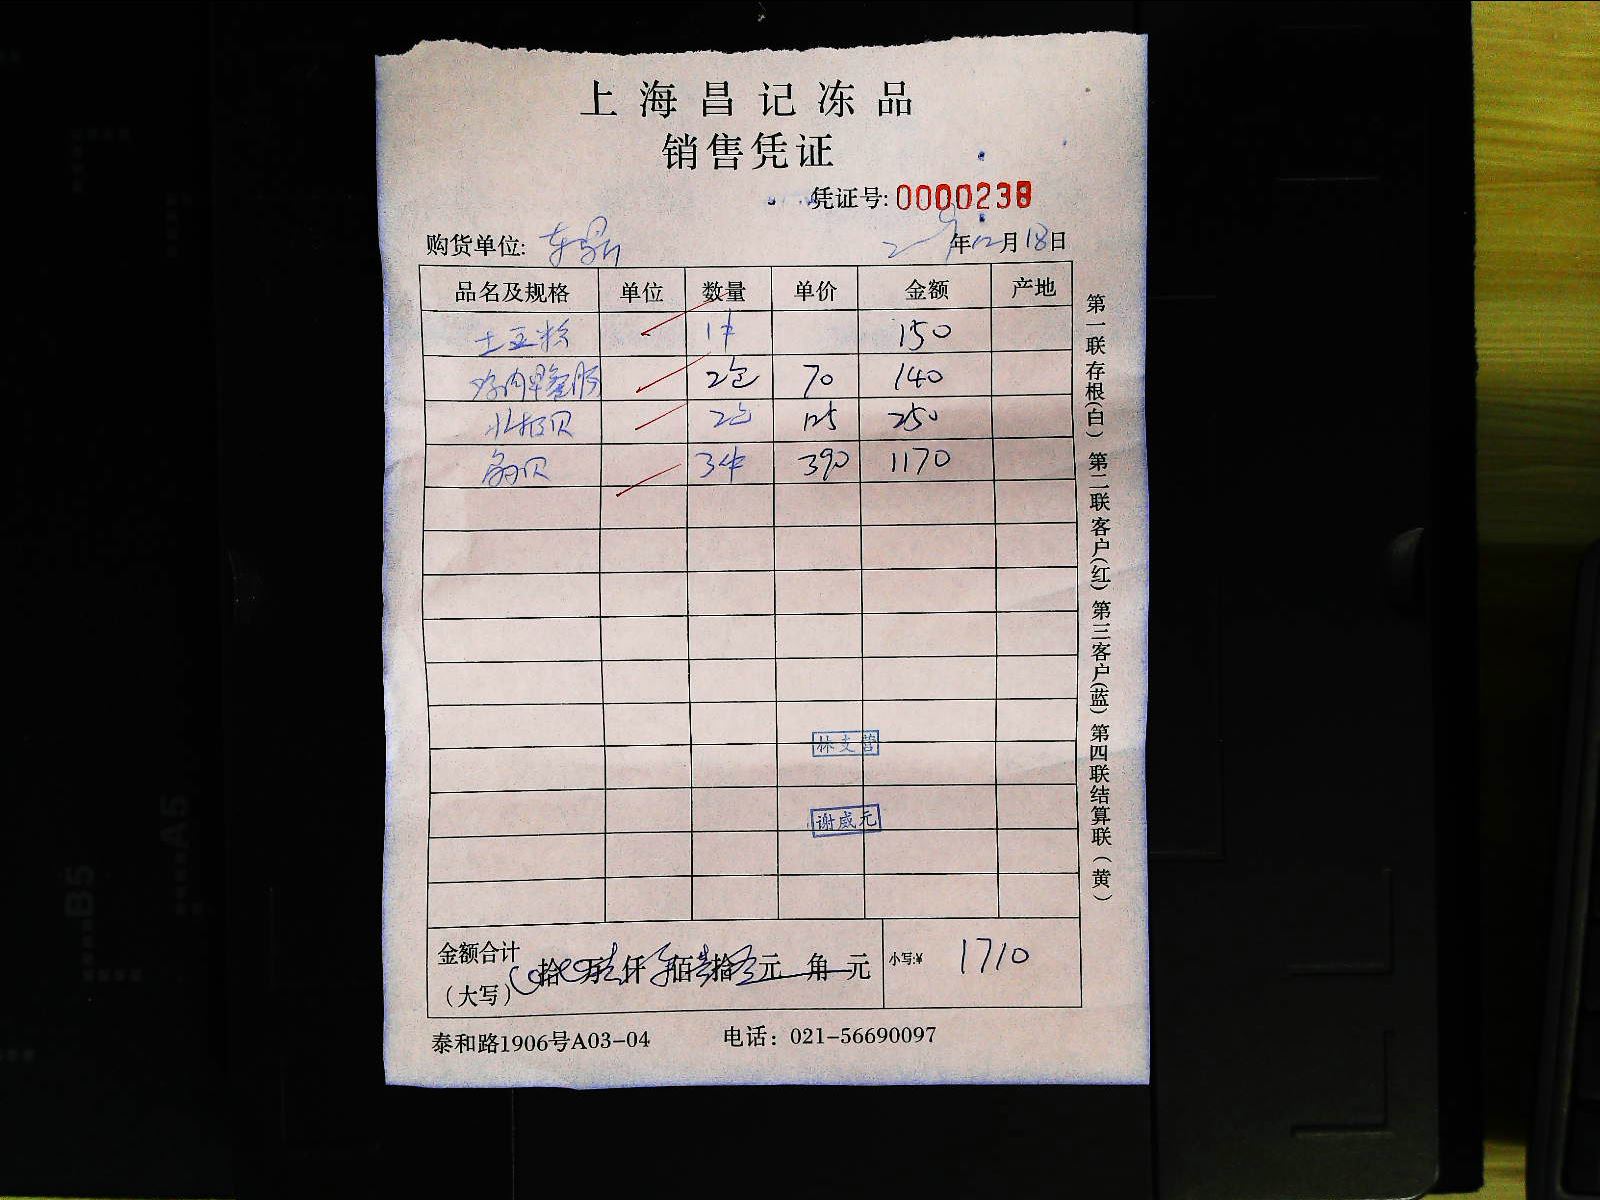 上海昌记冻品
销售凭证
凭证号: 0000238
购货单位: 年12月18日
品名及规格 单位 数量 单价 金额 产地
土豆粉 1件 150
鸡肉早餐肠 2包 70 140
北极贝 2包 125 250
扇贝 3件 390 1170
林支营
谢威元
金额合计
(大写) 拾 万 仟 佰 拾 元 角 元 小写:¥ 1710
泰和路1906号A03-04 电话: 021-56690097
第一联存根(白) 第二联客户(红) 第三客户(蓝) 第四联结算联(黄)
B5
A5